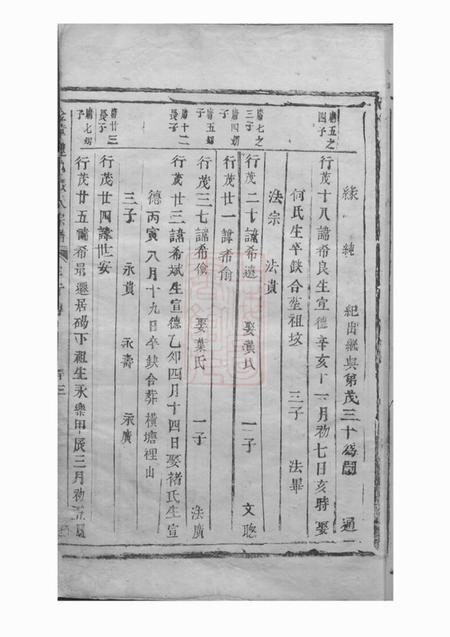 緣 純 紀出繼與第茂三十爲嗣 通一
唐五之四子
行茂十八諱希良生宣德辛亥十一月初七日亥時娶
何氏生卒缺合塟祖坟 三子 法畢
法宗 法貴
唐七之三子
行茂二十諱希遠 娶龔氏 一子 文聰
唐四嗣子
行茂廿一諱希偷
唐五嗣子
行茂三七諱希儉 娶葉氏 一子 法廣
唐十二長子
行茂廿三諱希斌生宣德乙卯四月十四日娶褚氏生宣
德丙寅八月十九日卒缺合葬橫塘裡山
三子 永貴 永壽 永廣
唐廿三長子
行茂廿四諱世安
唐七嗣子
行茂廿五諱希昂遷居碼下祖生永樂甲辰三月初五